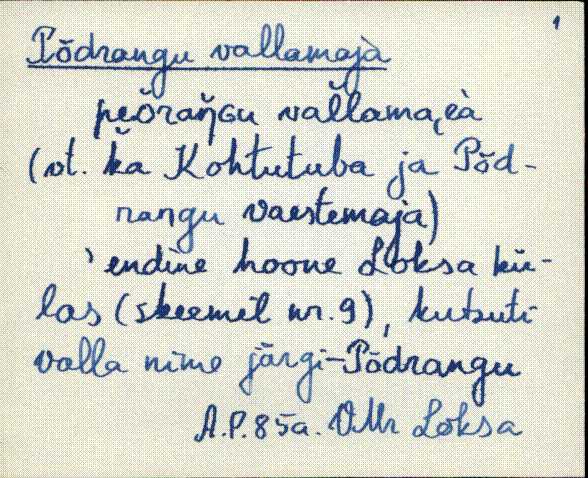 1
Põdrangu vallamaja
peŏraŋ̆Gu vaĺlama͔eà
(vt. ka Kohtutuba ja Põd-
rangu vaestemaja)
'endine hoone Loksa kü-
las (skeemil nr. 9), kutsuti
valla nime järgi-Põdrangu
A.P. 85a. VMr Loksa